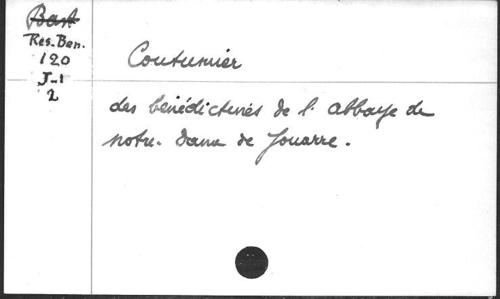 Bast
Res. Ben.
120
J-1
2
Coutumier
des bénédictines de l'abbaye de
Notre-Dame de Jouarre.